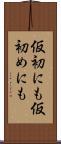 仮初にも仮
初めにも